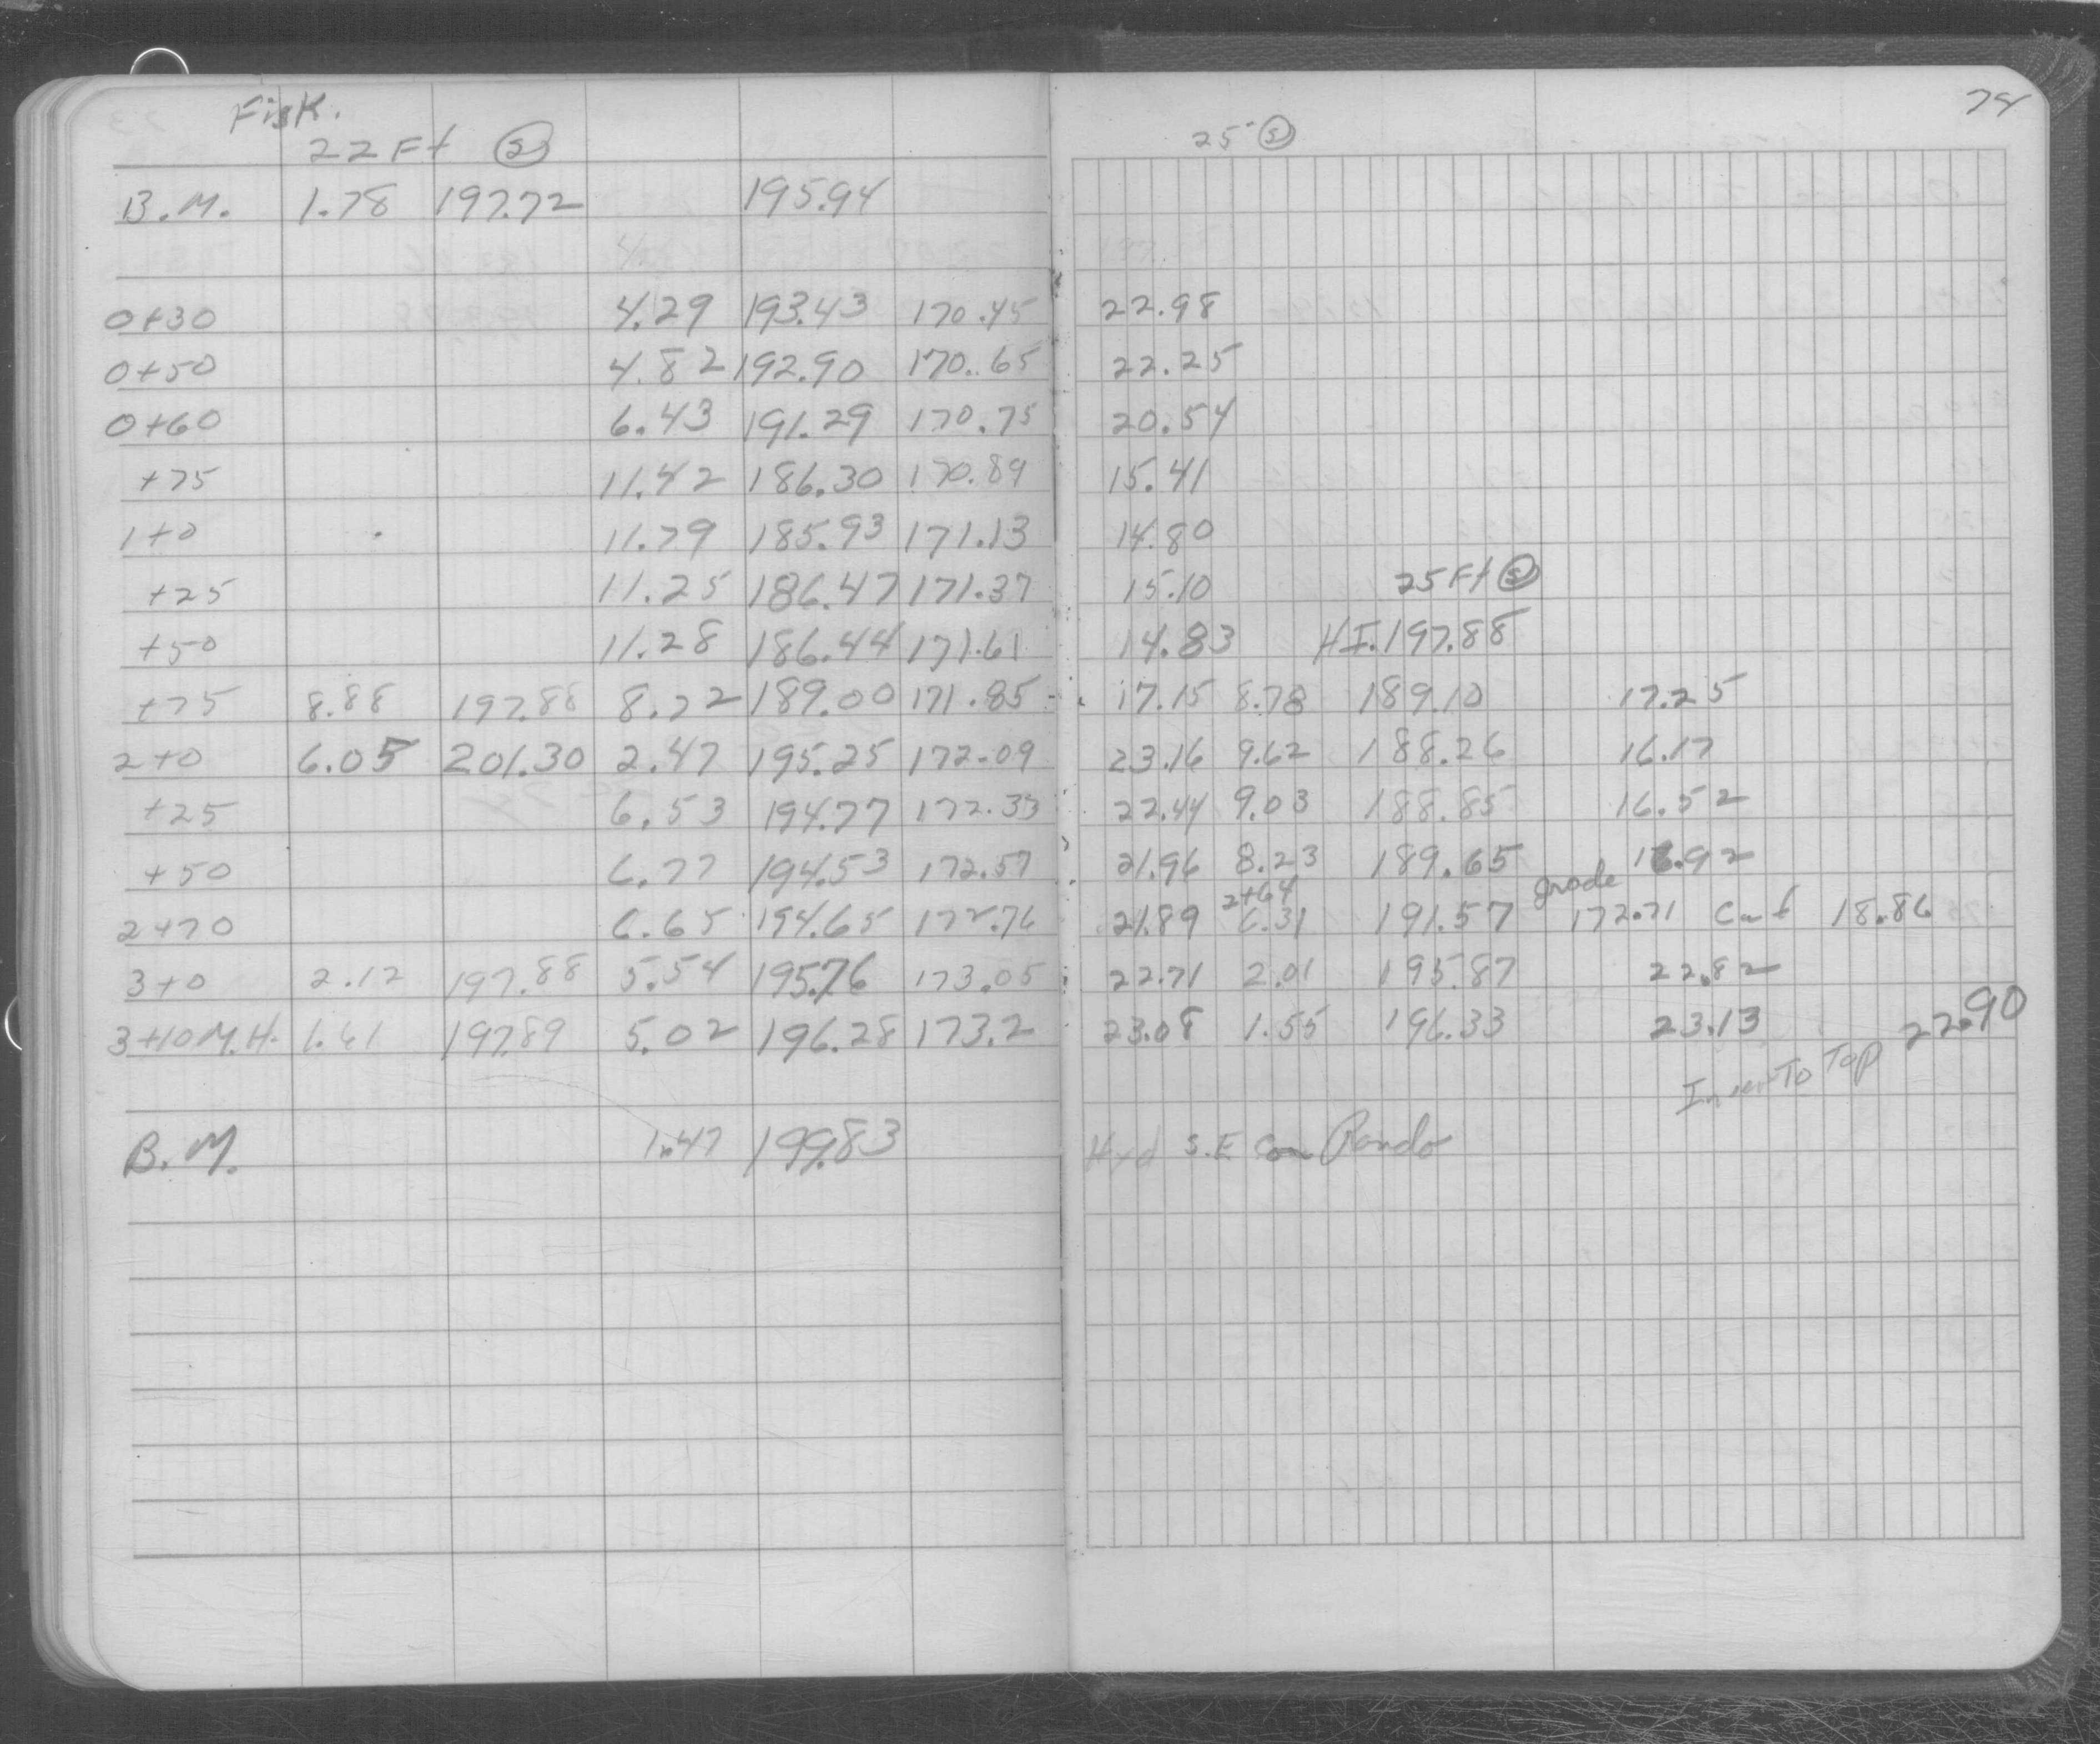 Fisk.
22 Ft Ⓢ
B.M. 1.78 197.72 195.94
0+30 4.29 193.43 170.45
0+50 4.82 192.90 170.65
0+60 6.43 191.29 170.75
+75 11.42 186.30 170.89
1+0 11.79 185.93 171.13
+25 11.25 186.47 171.37
+50 11.28 186.44 171.61
+75 8.88 197.88 8.72 189.00 171.85
2+0 6.05 201.30 2.47 195.25 172.09
+25 6.53 194.77 172.33
+50 6.77 194.53 172.57
2+70 6.65 194.65 172.76
3+0 2.12 197.88 5.54 195.76 173.05
3+10 M.H. 1.61 197.89 5.02 196.28 173.2
B.M. 1.47 199.83
74
25' Ⓢ
22.98
22.25
20.54
15.41
14.80
15.10 25 Ft Ⓢ
14.83 H.I. 197.88
17.15 8.78 189.10 17.25
23.16 9.62 188.26 16.17
22.44 9.03 188.85 16.52
21.96 8.23 189.65 16.92
2+64 grade
21.89 6.31 191.57 172.71 Cut 18.86
22.71 2.01 195.87 22.82
23.08 1.55 196.33 23.13 22.90
To Top
Hyd S.E Cor Pando